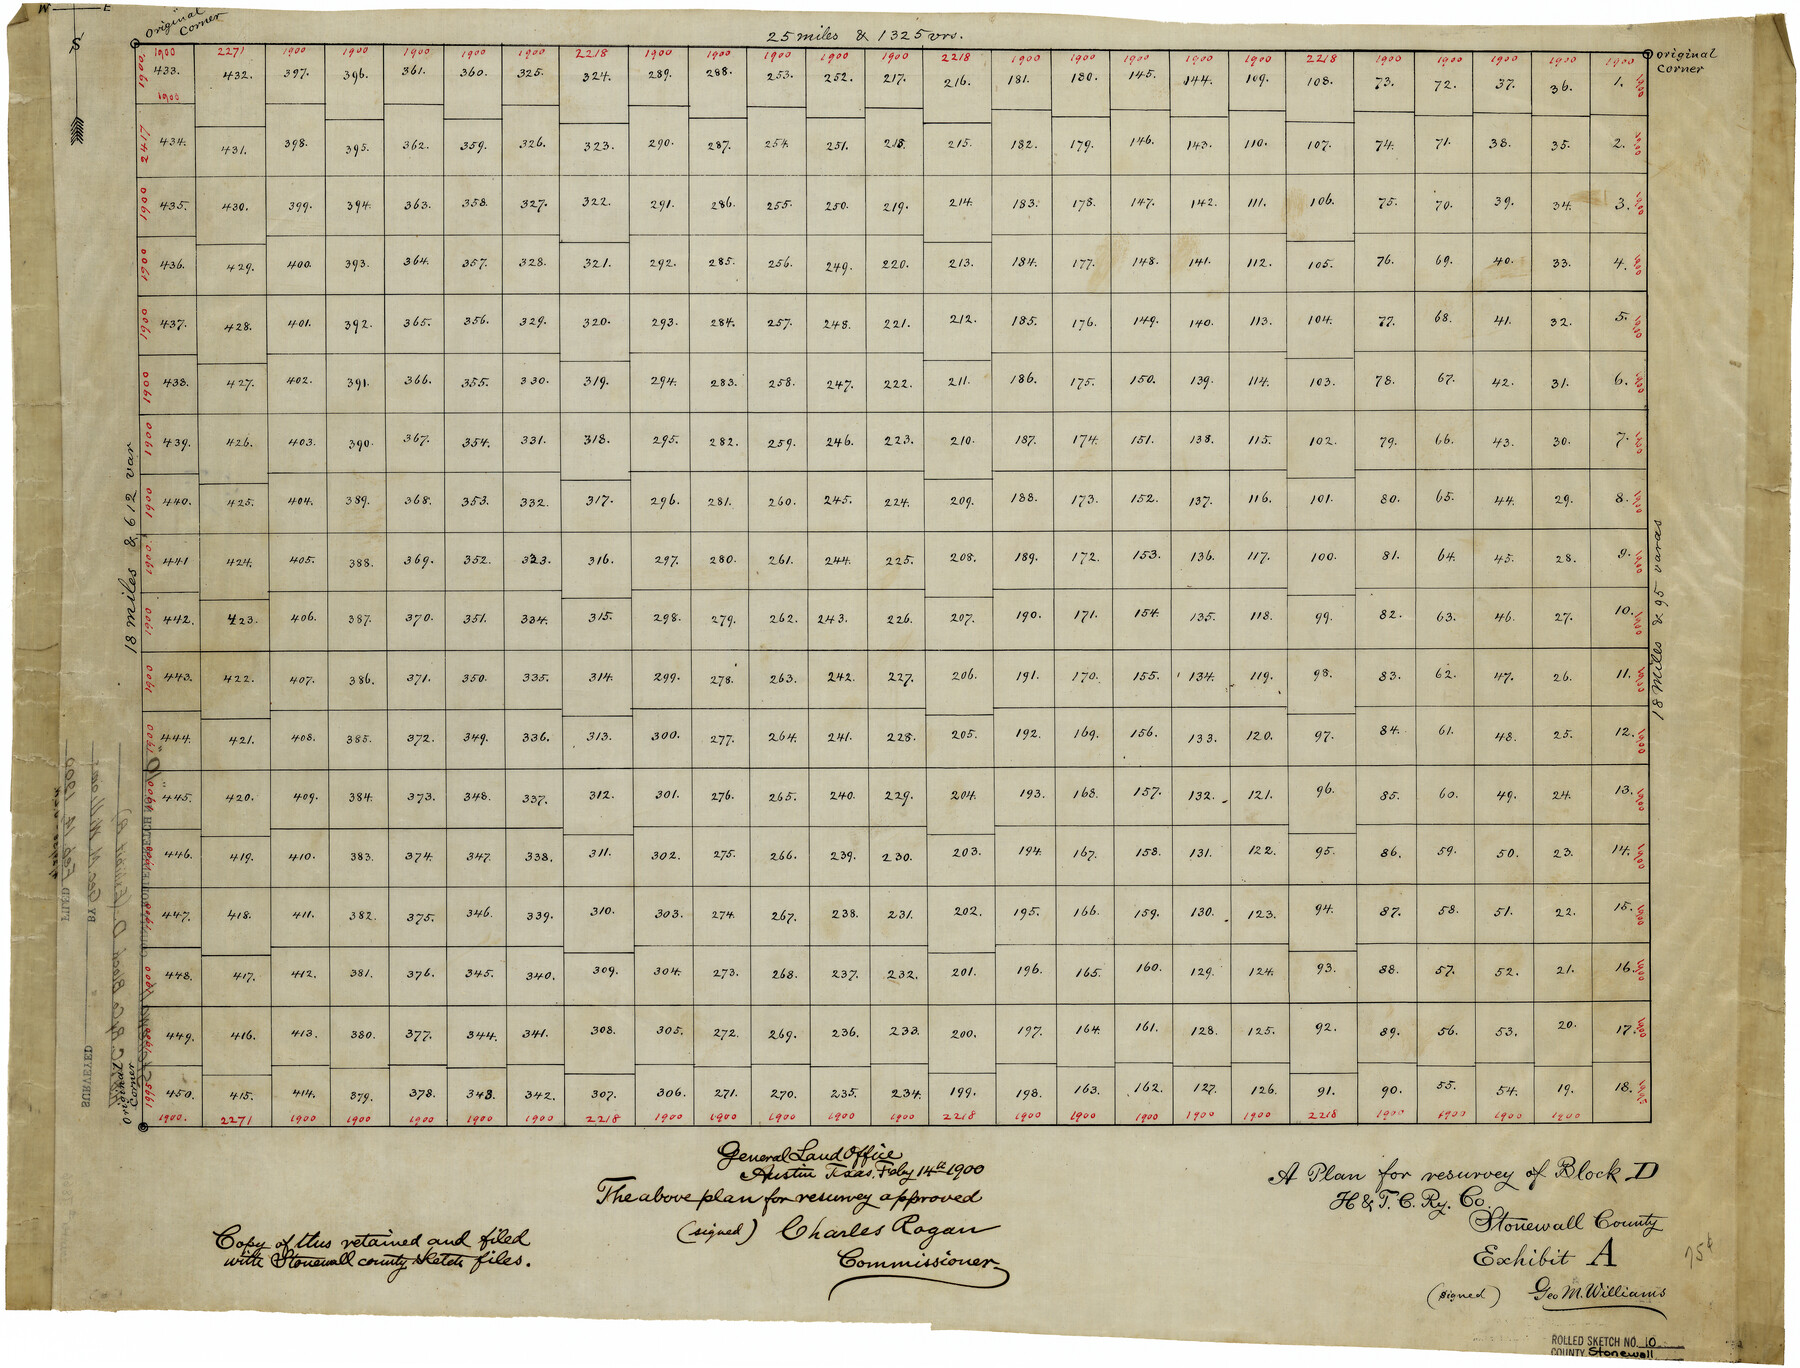 W E
S
Original
Corner
25 miles & 1325 vrs.
Original
Corner
1900 2271 1900 1900 1900 1900 1900 2218 1900 1900 1900 1900 1900 2218 1900 1900 1900 1900 1900 2218 1900 1900 1900 1900 1900
1900 433. 432. 397. 396. 361. 360. 325. 324. 289. 288. 253. 252. 217. 216. 181. 180. 145. 144. 109. 108. 73. 72. 37. 36. 1. 1900
1900
2417 434. 431. 398. 395. 362. 359. 326. 323. 290. 287. 254. 251. 218. 215. 182. 179. 146. 143. 110. 107. 74. 71. 38. 35. 2. 1900
1900 435. 430. 399. 394. 363. 358. 327. 322. 291. 286. 255. 250. 219. 214. 183. 178. 147. 142. 111. 106. 75. 70. 39. 34. 3. 1900
1900 436. 429. 400. 393. 364. 357. 328. 321. 292. 285. 256. 249. 220. 213. 184. 177. 148. 141. 112. 105. 76. 69. 40. 33. 4. 1900
1900 437. 428. 401. 392. 365. 356. 329. 320. 293. 284. 257. 248. 221. 212. 185. 176. 149. 140. 113. 104. 77. 68. 41. 32. 5. 1900
1900 438. 427. 402. 391. 366. 355. 330. 319. 294. 283. 258. 247. 222. 211. 186. 175. 150. 139. 114. 103. 78. 67. 42. 31. 6. 1900
1900 439. 426. 403. 390. 367. 354. 331. 318. 295. 282. 259. 246. 223. 210. 187. 174. 151. 138. 115. 102. 79. 66. 43. 30. 7. 1900
1900 440. 425. 404. 389. 368. 353. 332. 317. 296. 281. 260. 245. 224. 209. 188. 173. 152. 137. 116. 101. 80. 65. 44. 29. 8. 1900
1900 441 424. 405. 388. 369. 352. 323. 316. 297. 280. 261. 244. 225. 208. 189. 172. 153. 136. 117. 100. 81. 64. 45. 28. 9. 1900
1900 442. 423. 406. 387. 370. 351. 334. 315. 298. 279. 262. 243. 226. 207. 190. 171. 154. 135. 118. 99. 82. 63. 46. 27. 10. 1900
1900 443. 422. 407. 386. 371. 350. 335. 314. 299. 278. 263. 242. 227. 206. 191. 170. 155. 134. 119. 98. 83. 62. 47. 26. 11. 1900
1900 444. 421. 408. 385. 372. 349. 336. 313. 300. 277. 264. 241. 228. 205. 192. 169. 156. 133. 120. 97. 84. 61. 48. 25. 12. 1900
1900 445. 420. 409. 384. 373. 348. 337. 312. 301. 276. 265. 240. 229. 204. 193. 168. 157. 132. 121. 96. 85. 60. 49. 24. 13. 1900
1900 446. 419. 410. 383. 374. 347. 338. 311. 302. 275. 266. 239. 230. 203. 194. 167. 158. 131. 122. 95. 86. 59. 50. 23. 14. 1900
1900 447. 418. 411. 382. 375. 346. 339. 310. 303. 274. 267. 238. 231. 202. 195. 166. 159. 130. 123. 94. 87. 58. 51. 22. 15. 1900
1900 448. 417. 412. 381. 376. 345. 340. 309. 304. 273. 268. 237. 232. 201. 196. 165. 160. 129. 124. 93. 88. 57. 52. 21. 16. 1900
1900 449. 416. 413. 380. 377. 344. 341. 308. 305. 272. 269. 236. 233. 200. 197. 164. 161. 128. 125. 92. 89. 56. 53. 20. 17. 1900
1995 450. 415. 414. 379. 378. 343. 342. 307. 306. 271. 270. 235. 234. 199. 198. 163. 162. 127. 126. 91. 90. 55. 54. 19. 18. 1995
1900. 2271 1900 1900 1900 1900 1900 2218 1900 1900 1900 1900 1900 2218 1900 1900 1900 1900 1900 2218 1900 1900 1900 1900
18 miles & 612 var
18 miles & 95 varas
Original
Corner
SURVEYED
BY Geo. M. Williams
FILED Feb 14 1900
General Land Office
Austin Texas, Feby 14th 1900
The above plan for resurvey approved
(signed) Charles Rogan
Commissioner
Copy of this retained and filed
with Stonewall county sketch files.
A Plan for resurvey of Block D
H & T. C. Ry. Co.
Stonewall County
Exhibit A
(signed) Geo M. Williams
75¢
ROLLED SKETCH NO. 10
COUNTY Stonewall